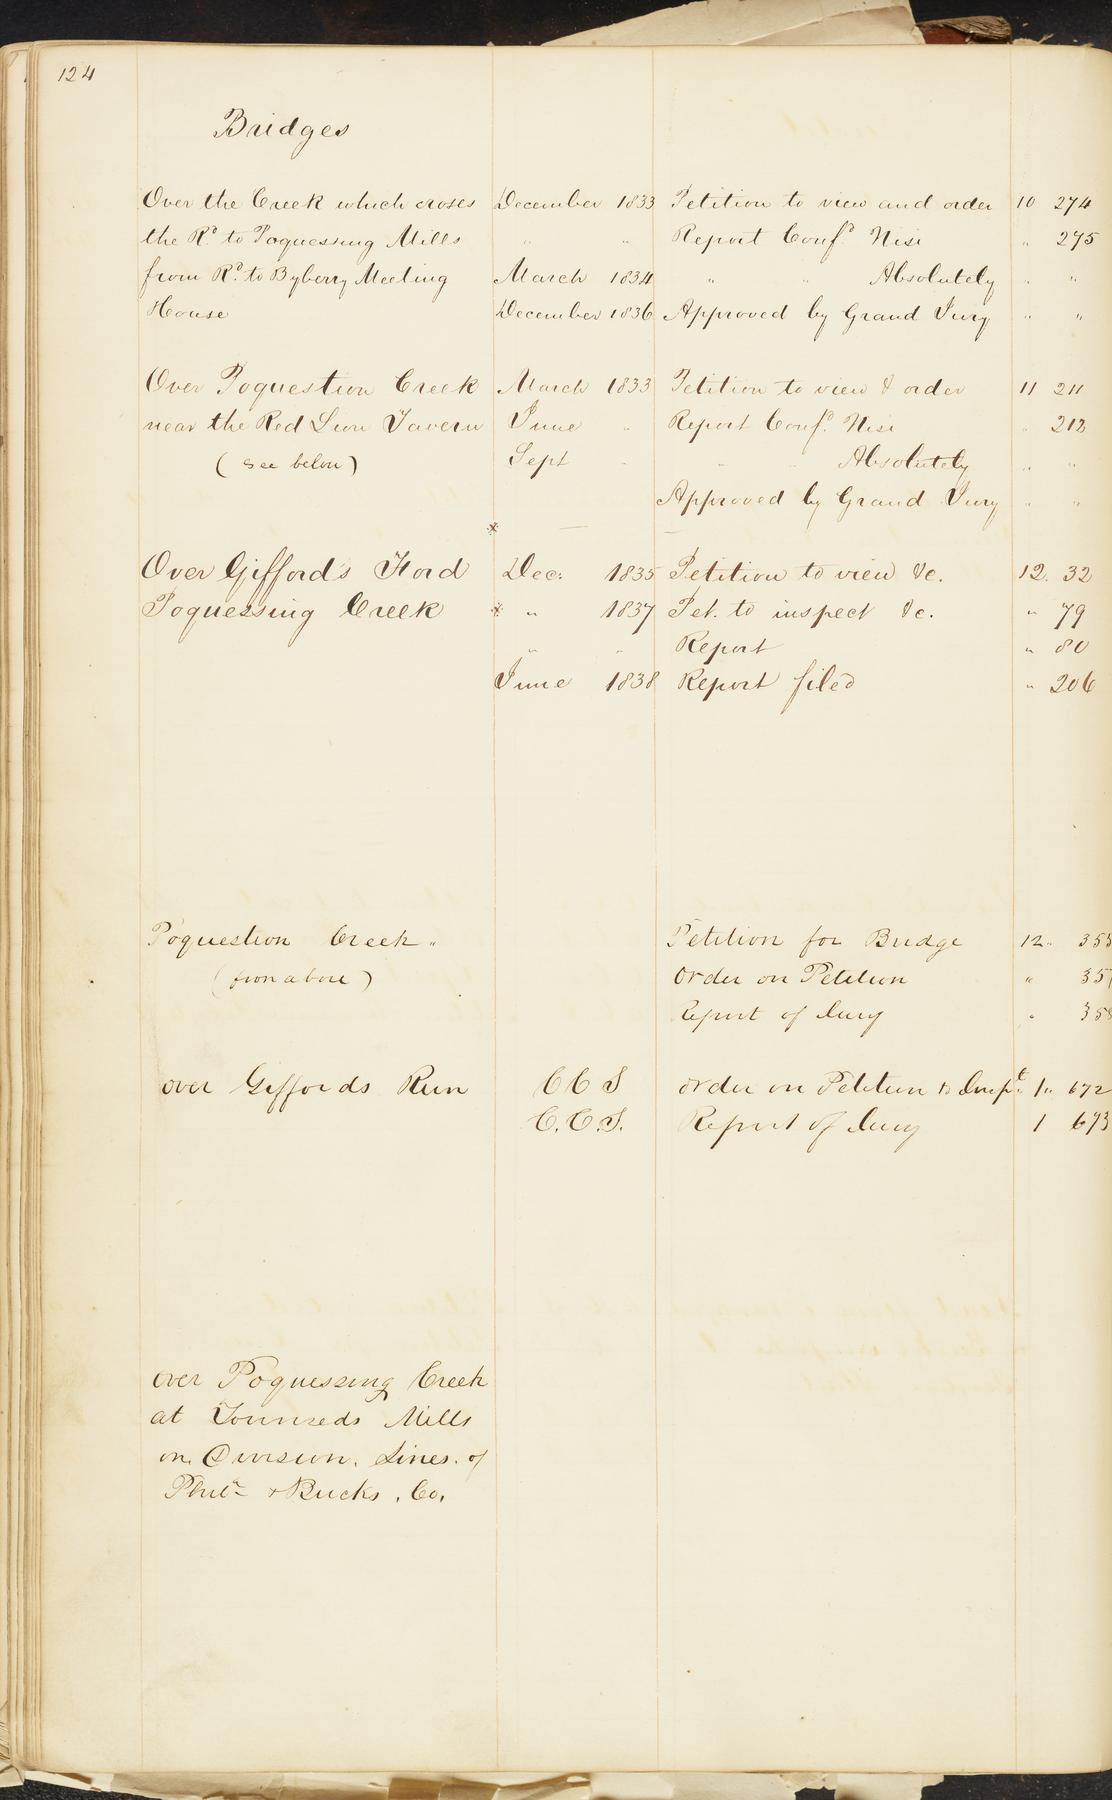 124
Bridges
Over the Creek which croses December 1833 Petition to view and order 10 274
the Rd. to Poquessing Mills " " Report Confd. Nisi " 275
from Rd. to Byberry Meeting March 1834 " " Absolutely " "
House December 1836 Approved by Grand Jury " "
Over Poquestion Creek March 1833 Petition to view & order 11 211
near the Red Lion Tavern June " Report Confd. Nisi " 212
( see below ) Sept " " " Absolutely " "
Approved by Grand Jury " "
* —
Over Gifford's Ford Dec: 1835 Petition to view &c. 12. 32
Poquessing Creek * " 1837 Pet. to inspect &c. " 79
" " Report " 80
June 1838 Report filed " 206
Poquestion Creek " Petition for Bridge 12 "
( from above ) Order on Petition "
Report of Jury "
over Giffords Run C C S order on Petition to Inspt. 1 " 672
C. C. S. Report of Jury 1 673
over Poquessing Creek
at Tounseds Mills
on Division. Lines. of
Phila + Bucks. Co.